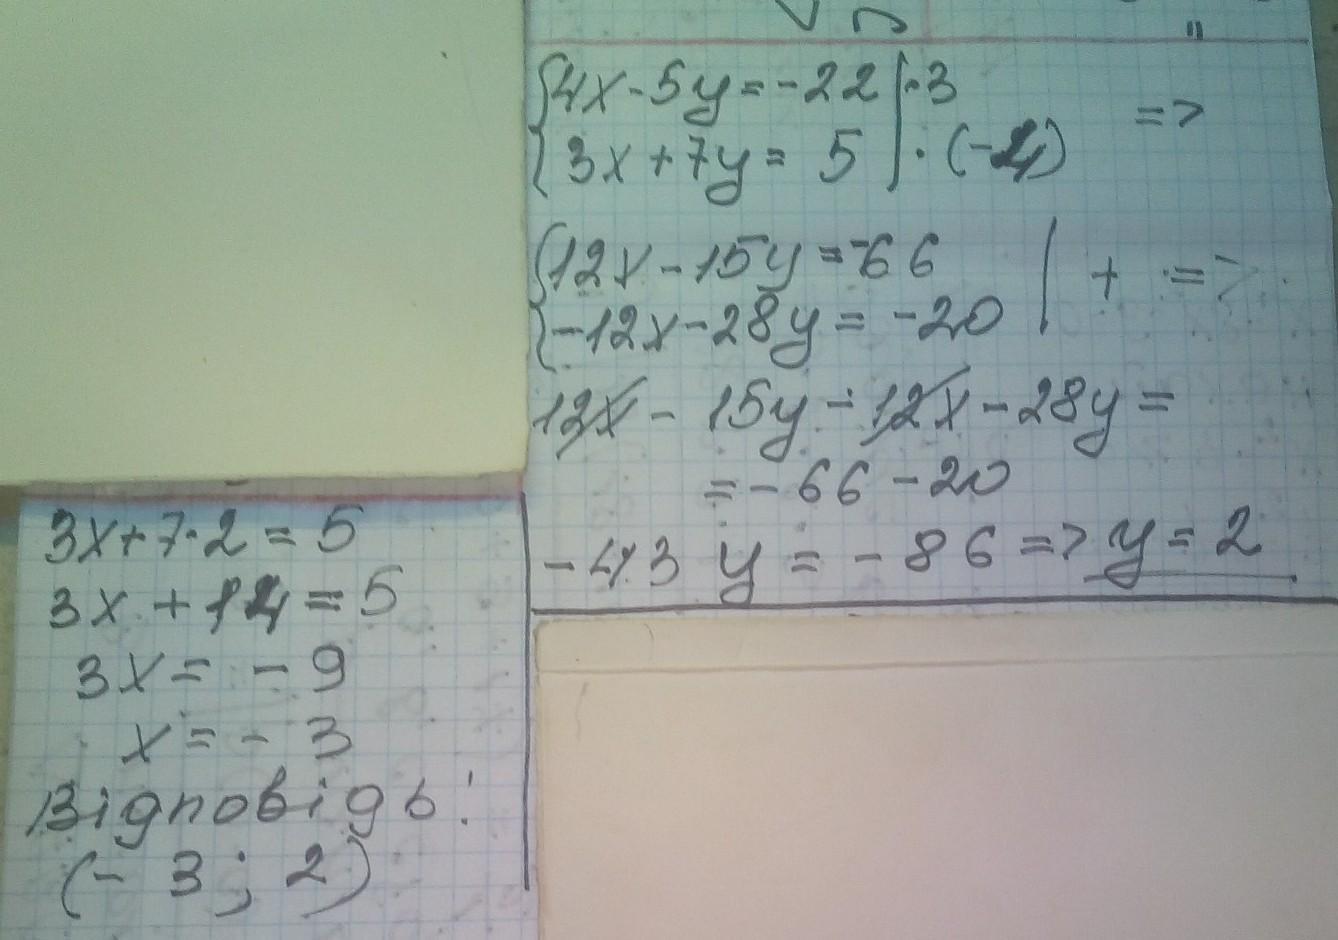 {4x-5y=-22 |·3
{3x+7y= 5 |·(-4) =>
{12x-15y=-66
{-12x-28y=-20 | + =>
12x - 15y-12x-28y=
=-66-20
-43 y = -86 => y=2
3x+7·2=5
3x+14=5
3x= -9
x=-3
Відповідь:
(-3; 2)